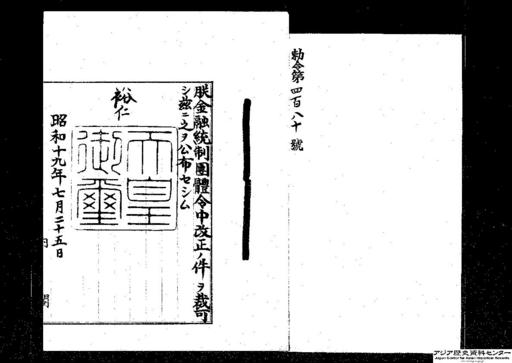 勅令第四百八十號
朕金融統制團體令中改正ノ件ヲ裁可
シ茲ニ之ヲ公布セシム
裕仁
天皇
御璽
昭和十九年七月二十五日
内閣
アジア歴史資料センター
Japan Center for Asian Historical Records